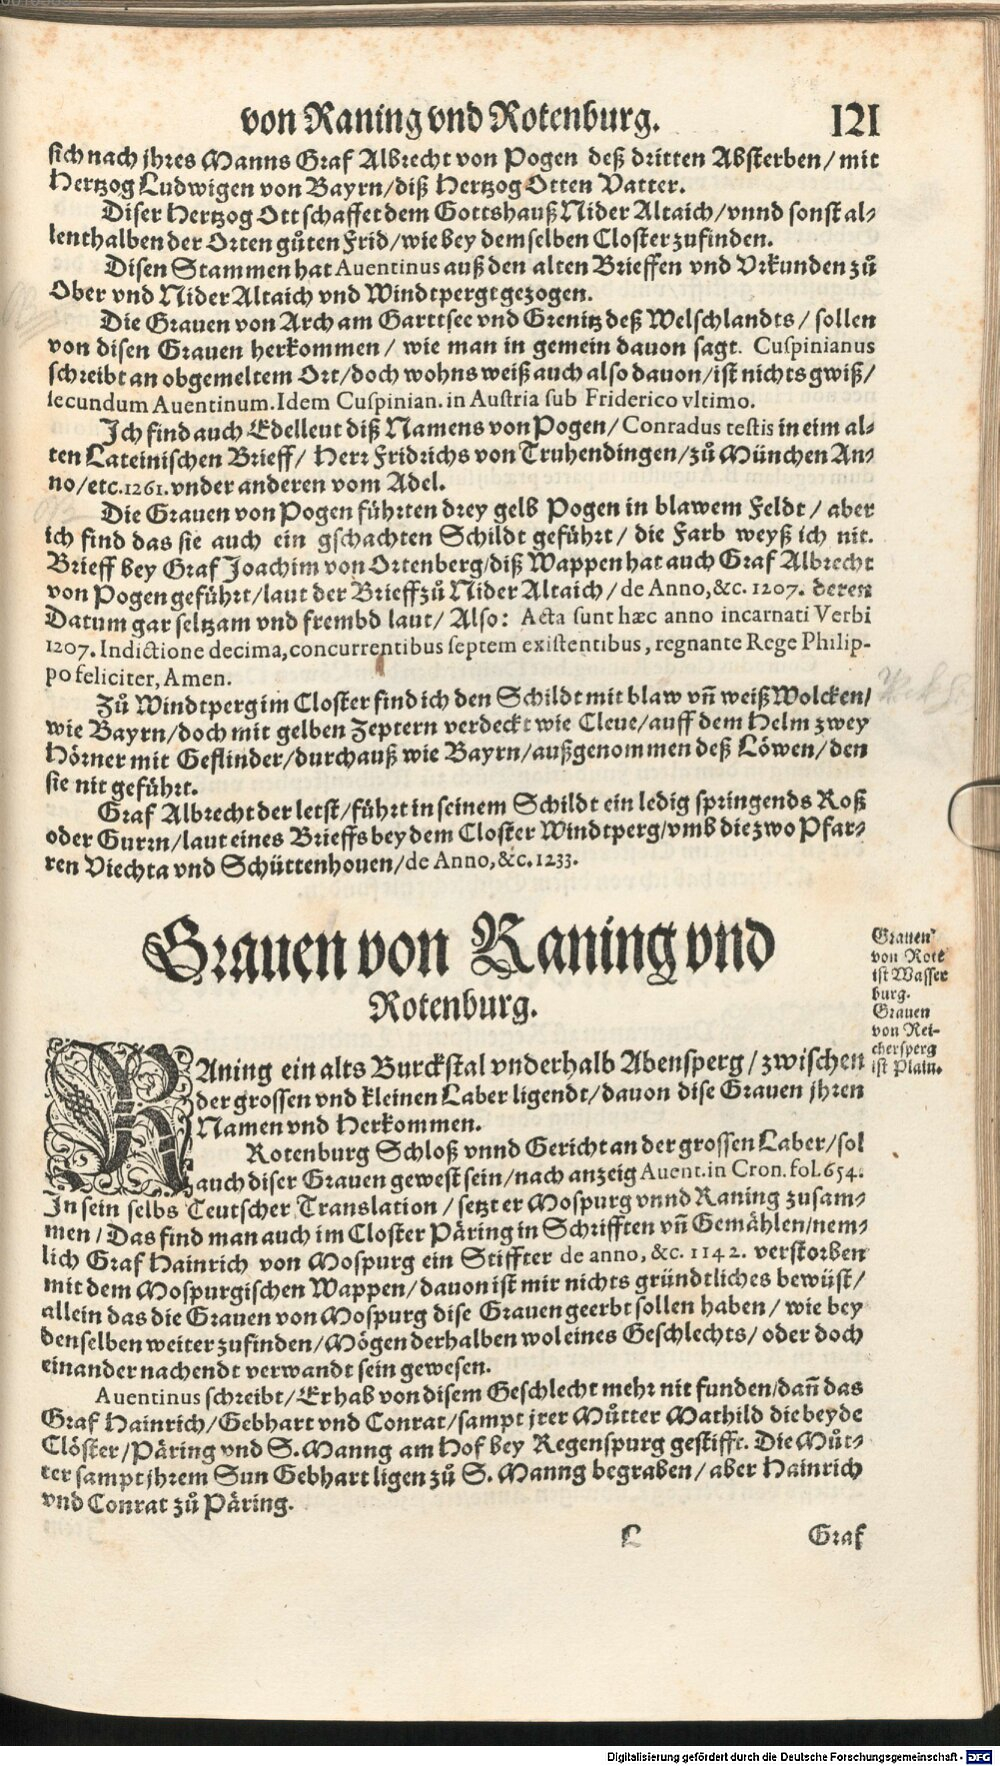 von Raning vnd Rotenburg. 121
sich nach jhres Manns Graf Albrecht von Pogen deß dritten Absterben / mit
Hertzog Ludwigen von Bayrn / diß Hertzog Otten Vatter.
Diser Hertzog Ott schaffet dem Gottshauß Nider Altaich / vnnd sonst al⸗
lenthalben der Orten guͦten Frid / wie bey demselben Closter zufinden.
Disen Stammen hat Auentinus auß den alten Brieffen vnd Vrkunden zuͦ
Ober vnd Nider Altaich vnd Windtpergt gezogen.
Die Grauen von Arch am Garttsee vnd Grenitz deß Welschlandts / sollen
von disen Grauen herkommen / wie man in gemein dauon sagt. Cuspinianus
schreibt an obgemeltem Ort / doch wohns weiß auch also dauon / ist nichts gwiß /
secundum Auentinum. Idem Cuspinian. in Austria sub Friderico vltimo.
Ich find auch Edelleut diß Namens von Pogen / Conradus testis in eim al⸗
ten Lateinischen Brieff / Herr Fridrichs von Truhendingen / zuͦ München An⸗
no / etc. 1261. vnder anderen vom Adel.
Die Grauen von Pogen führten drey gelb Pogen in blawem Feldt / aber
ich find das sie auch ein gschachten Schildt geführt / die Farb weyß ich nit.
Brieff bey Graf Joachim von Ortenberg / diß Wappen hat auch Graf Albrecht
von Pogen geführt / laut der Brieff zuͦ Nider Altaich / de Anno, &c. 1207. deren
Datum gar seltzam vnd frembd laut / Also: Acta sunt hæc anno incarnati Verbi
1207. Indictione decima, concurrentibus septem existentibus, regnante Rege Philip-
po feliciter, Amen.
Zuͦ Windtperg im Closter find ich den Schildt mit blaw vn̄ weiß Wolcken /
wie Bayrn / doch mit gelben Zeptern verdeckt wie Cleue / auff dem Helm zwey
Hörner mit Geflinder / durchauß wie Bayrn / außgenommen deß Löwen / den
sie nit geführt.
Graf Albrecht der letst / führt in seinem Schildt ein ledig springends Roß
oder Gurrn / laut eines Brieffs bey dem Closter Windtperg / vmb die zwo Pfar⸗
ren Viechta vnd Schüttenhouen / de Anno, &c. 1233.
Grauen von Raning vnd
Rotenburg.
Grauen
von Rote
ist Wasser
burg.
Grauen
von Rei-
chersperg
ist Plain.
RAning ein alts Burckstal vnderhalb Abensperg / zwischen
der grossen vnd kleinen Laber ligendt / dauon dise Grauen jhren
Namen vnd Herkommen.
Rotenburg Schloß vnnd Gericht an der grossen Laber / sol
auch diser Grauen gewest sein / nach anzeig Auent. in Cron. fol. 654.
In sein selbs Teutscher Translation / setzt er Mospurg vnnd Raning zusam⸗
men / Das find man auch im Closter Päring in Schrifften vn̄ Gemählen / nem⸗
lich Graf Hainrich von Mospurg ein Stiffter de anno, &c. 1142. verstorben
mit dem Mospurgischen Wappen / dauon ist mir nichts gründtliches bewüst /
allein das die Grauen von Mospurg dise Grauen geerbt sollen haben / wie bey
denselben weiter zufinden / Mögen derhalben wol eines Geschlechts / oder doch
einander nachendt verwandt sein gewesen.
Auentinus schreibt / Er hab von disem Geschlecht mehr nit funden / dan̄ das
Graf Hainrich / Gebhart vnd Conrat / sampt jrer Muͦtter Mathild die beyde
Clöster / Päring vnd S. Manng am Hof bey Regenspurg gestifft. Die Muͦt⸗
ter sampt jhrem Sun Gebhart ligen zuͦ S. Manng begraben / aber Hainrich
vnd Conrat zuͦ Päring.
L Graf
Digitalisierung gefördert durch die Deutsche Forschungsgemeinschaft - DFG